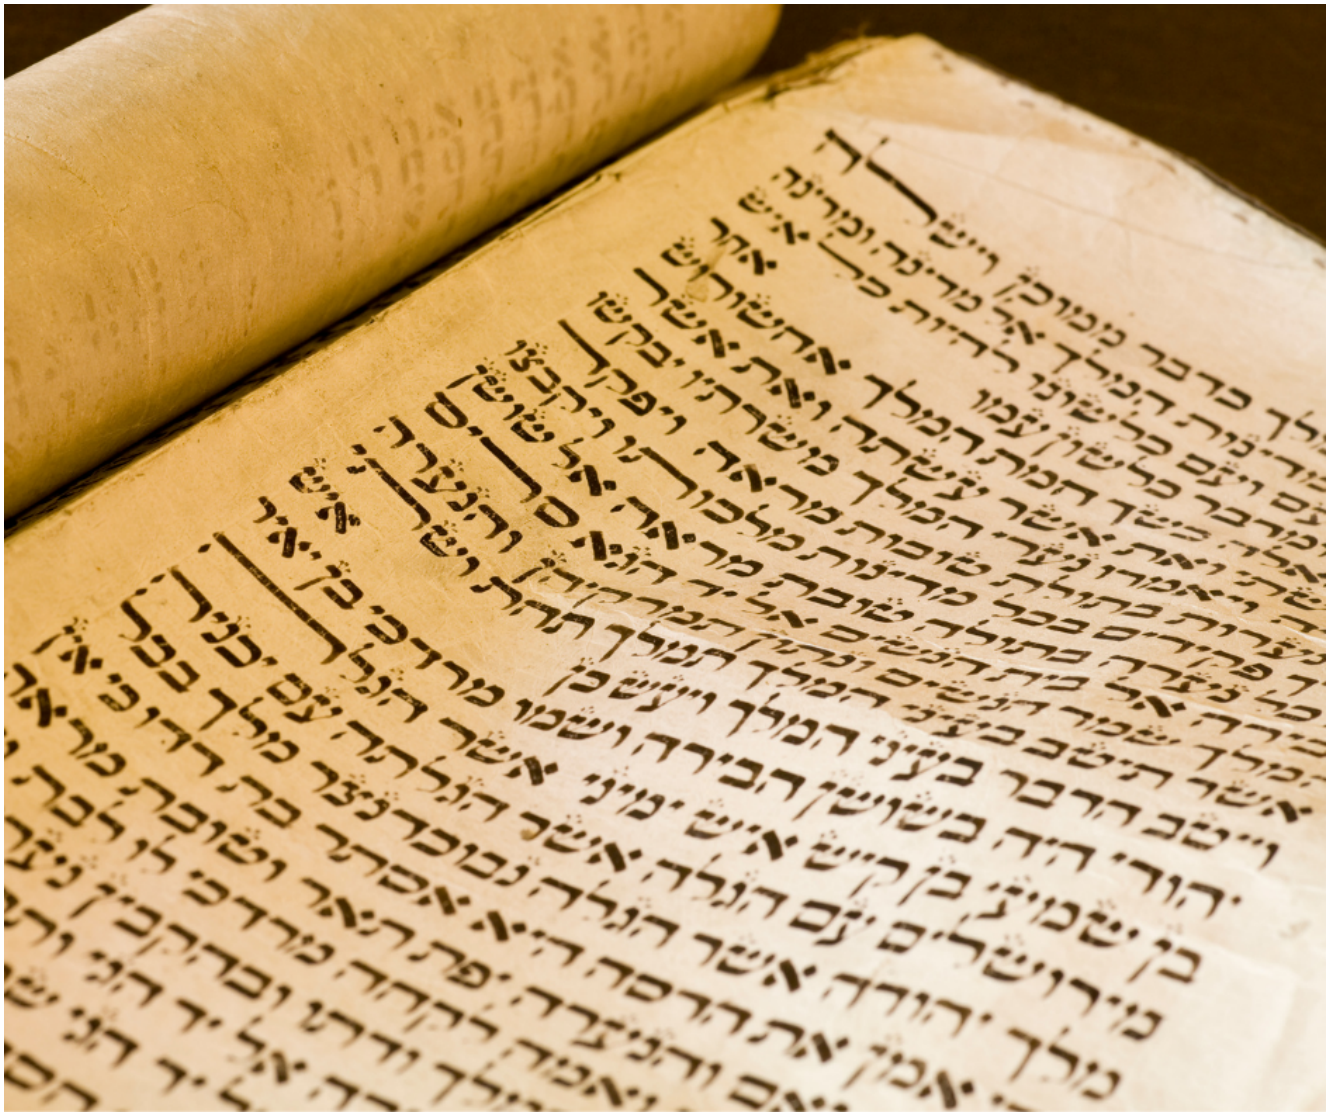 כדבר ממוכן וישלח
המלך אל מדינה ומדינה
ועם כלשונו להיות כל איש
ומדבר כלשון עמו אחר
כשך חמת המלך אחשורוש
ואת אשר עשתה ואת אשר
ויאמרו נערי המלך משרתיו יבקשו
בתולות טובות מראה ויפקד
פקידים בכל מדינות מלכותו ויקבצו
כל נערה בתולה טובת מראה אל שושן
הבירה אל בית הנשים אל יד הגא סריס
המלך שמר הנשים ונתון תמרקיהן והנערה
אשר תיטב בעיני המלך תמלך תחת ושתי
וייטב הדבר בעיני המלך ויעש כן איש
יהודי היה בשושן הבירה ושמו מרדכי בן יאיר
בן שמעי בן קיש איש ימיני אשר הגלה
מירושלים עם הגלה אשר הגלתה עם יכניה
מלך יהודה אשר הגלה נבוכדנצר מלך בבל
אמן את הדסה היא אסתר בת דדו כי אין
ואם והנערה יפת תאר וטובת מראה
ואמה לקחה מרדכי לו לבת
המלך ודתו ובהקבץ
אל יד הגי
אל יד הגי